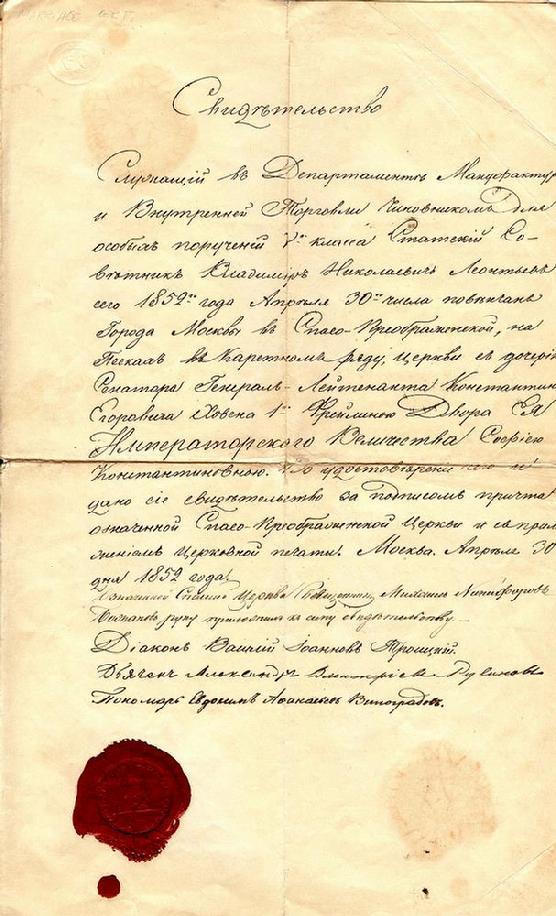 MARRIAGE CERT.
Свидѣтельство
Служащій въ Департаментѣ Мануфактур
и Внутренней Торговли Чиновникомъ для
особыхъ порученій класса Статскій Со-
вѣтникъ Владиміръ Николаевичъ Леонтьевъ
сего 1852го года Апрѣля 30го числа повѣнчанъ
Города Москвы въ Спасо-Преображенской, на
Пескахъ въ Каретномъ ряду, церкви съ дочерью
Сенатора Генералъ-Лейтенанта Константина
Егоровича 1ю Фрейлиною Двора Ея
Императорскаго Величества Софіею
Константиновною. Что удостовѣреніе
дано сіе свидѣтельство за подписомъ причта
означенной Спасо-Преображенской Церкви и съ прило
женіемъ Церковной печати. Москва. Апрѣля 30
дня 1852 года.
Означенной Церкви Священникъ Никифоровъ
руку приложилъ къ сему свидѣтельству
Діаконъ Василій Іоанновъ Троицкій.
Дьячекъ Александръ Димитріевъ
Пономарь Евдокимъ Аѳанасьевъ Виноградовъ.